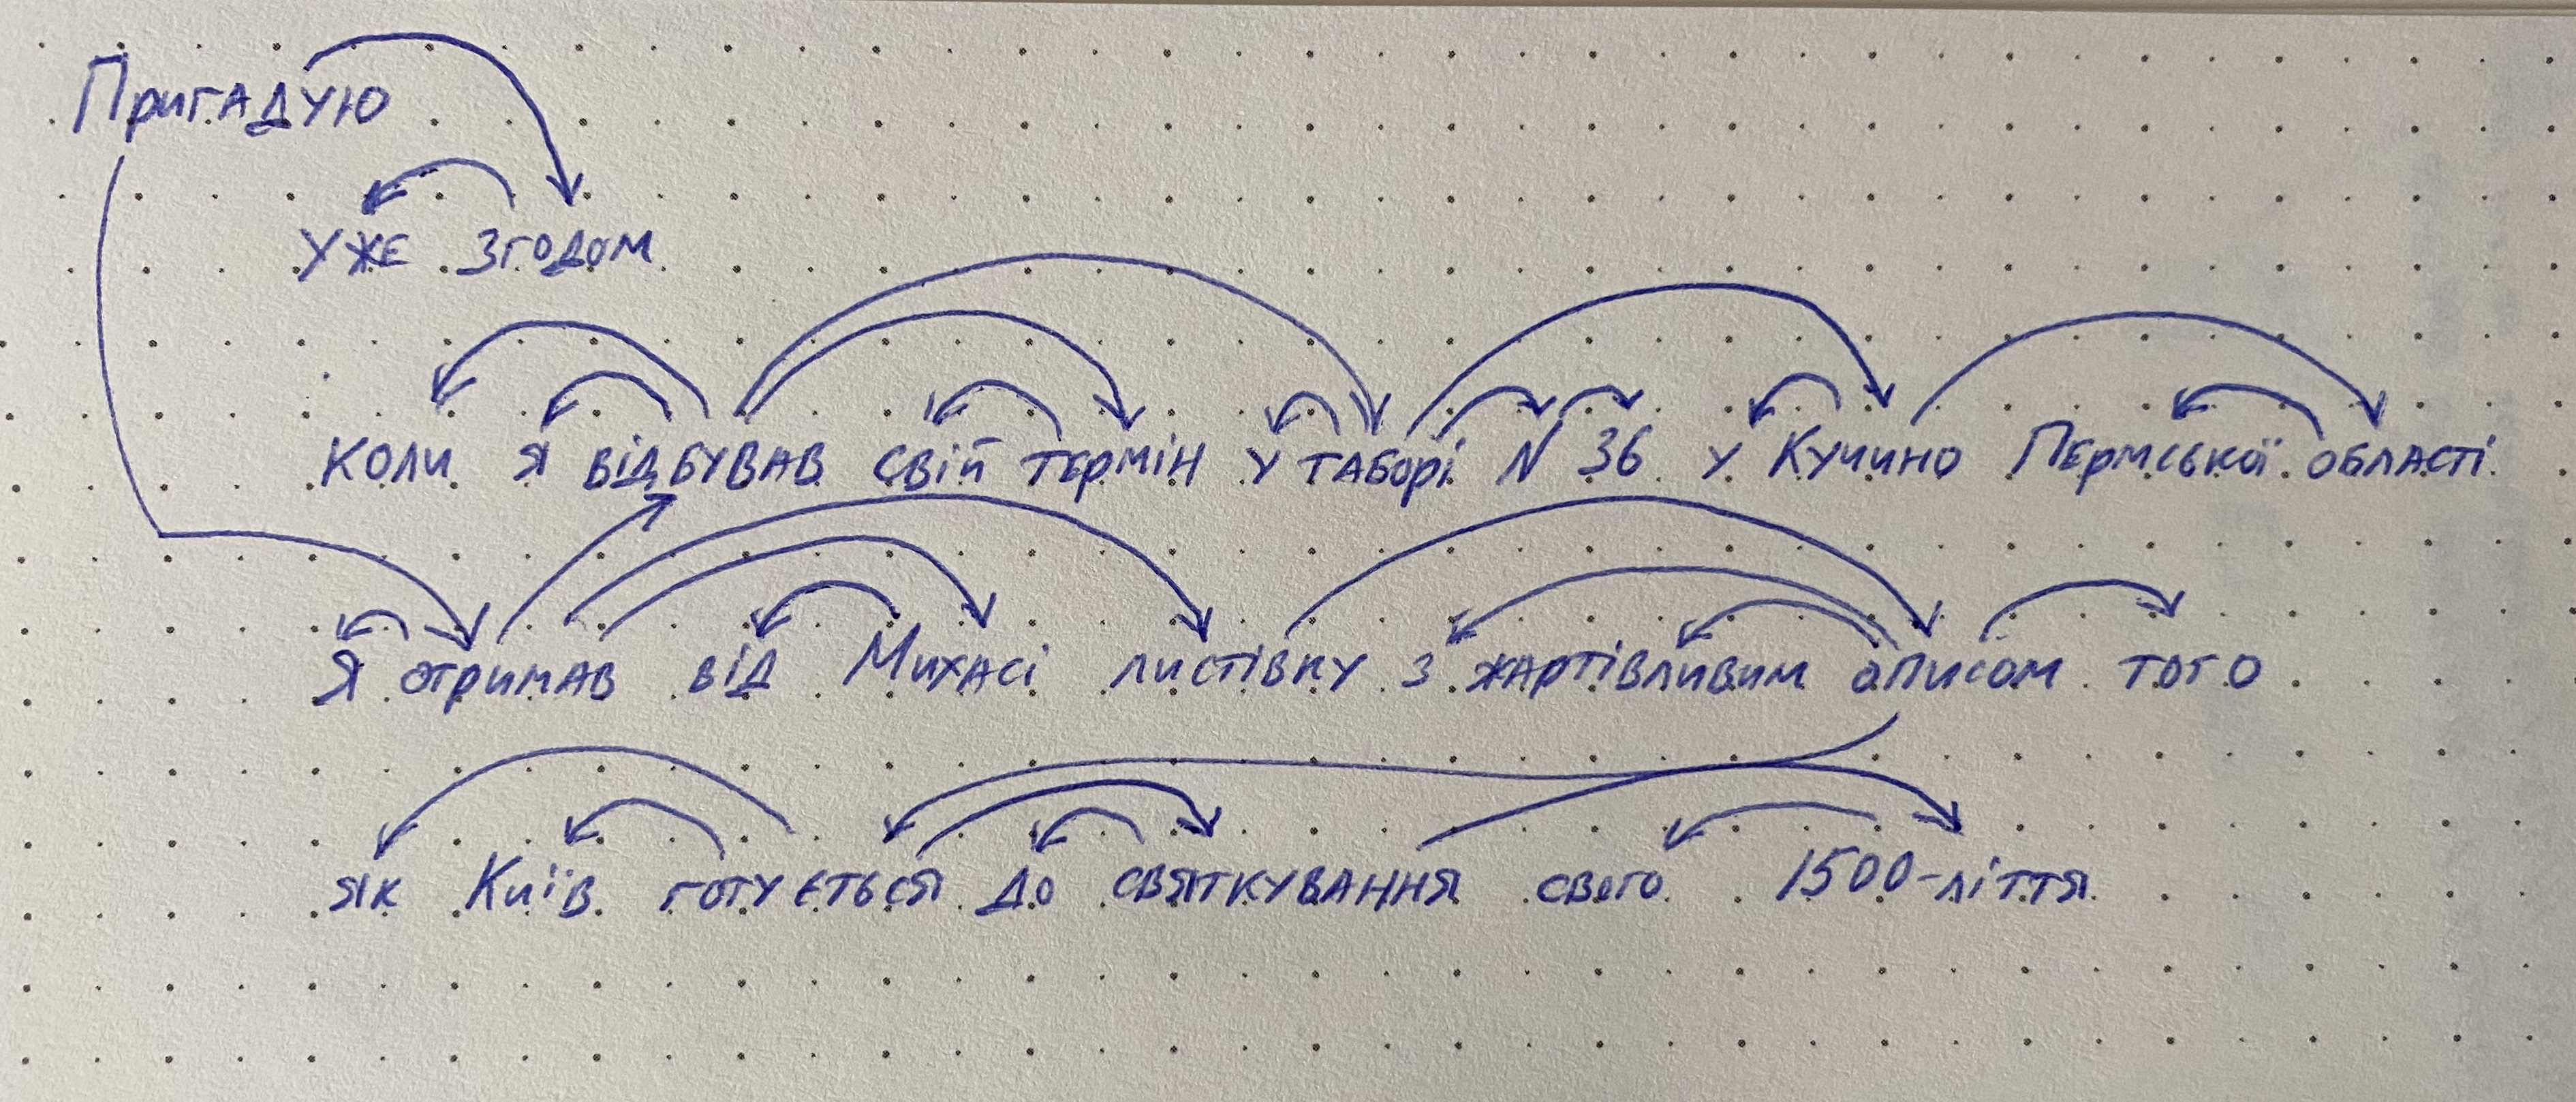 Пригадую
уже згодом
коли я відбував свій термін у таборі № 36 у Кучино Пермської області
Я отримав від Михасі листівку з жартівливим описом того
як Київ готується до святкування свого 1500-ліття